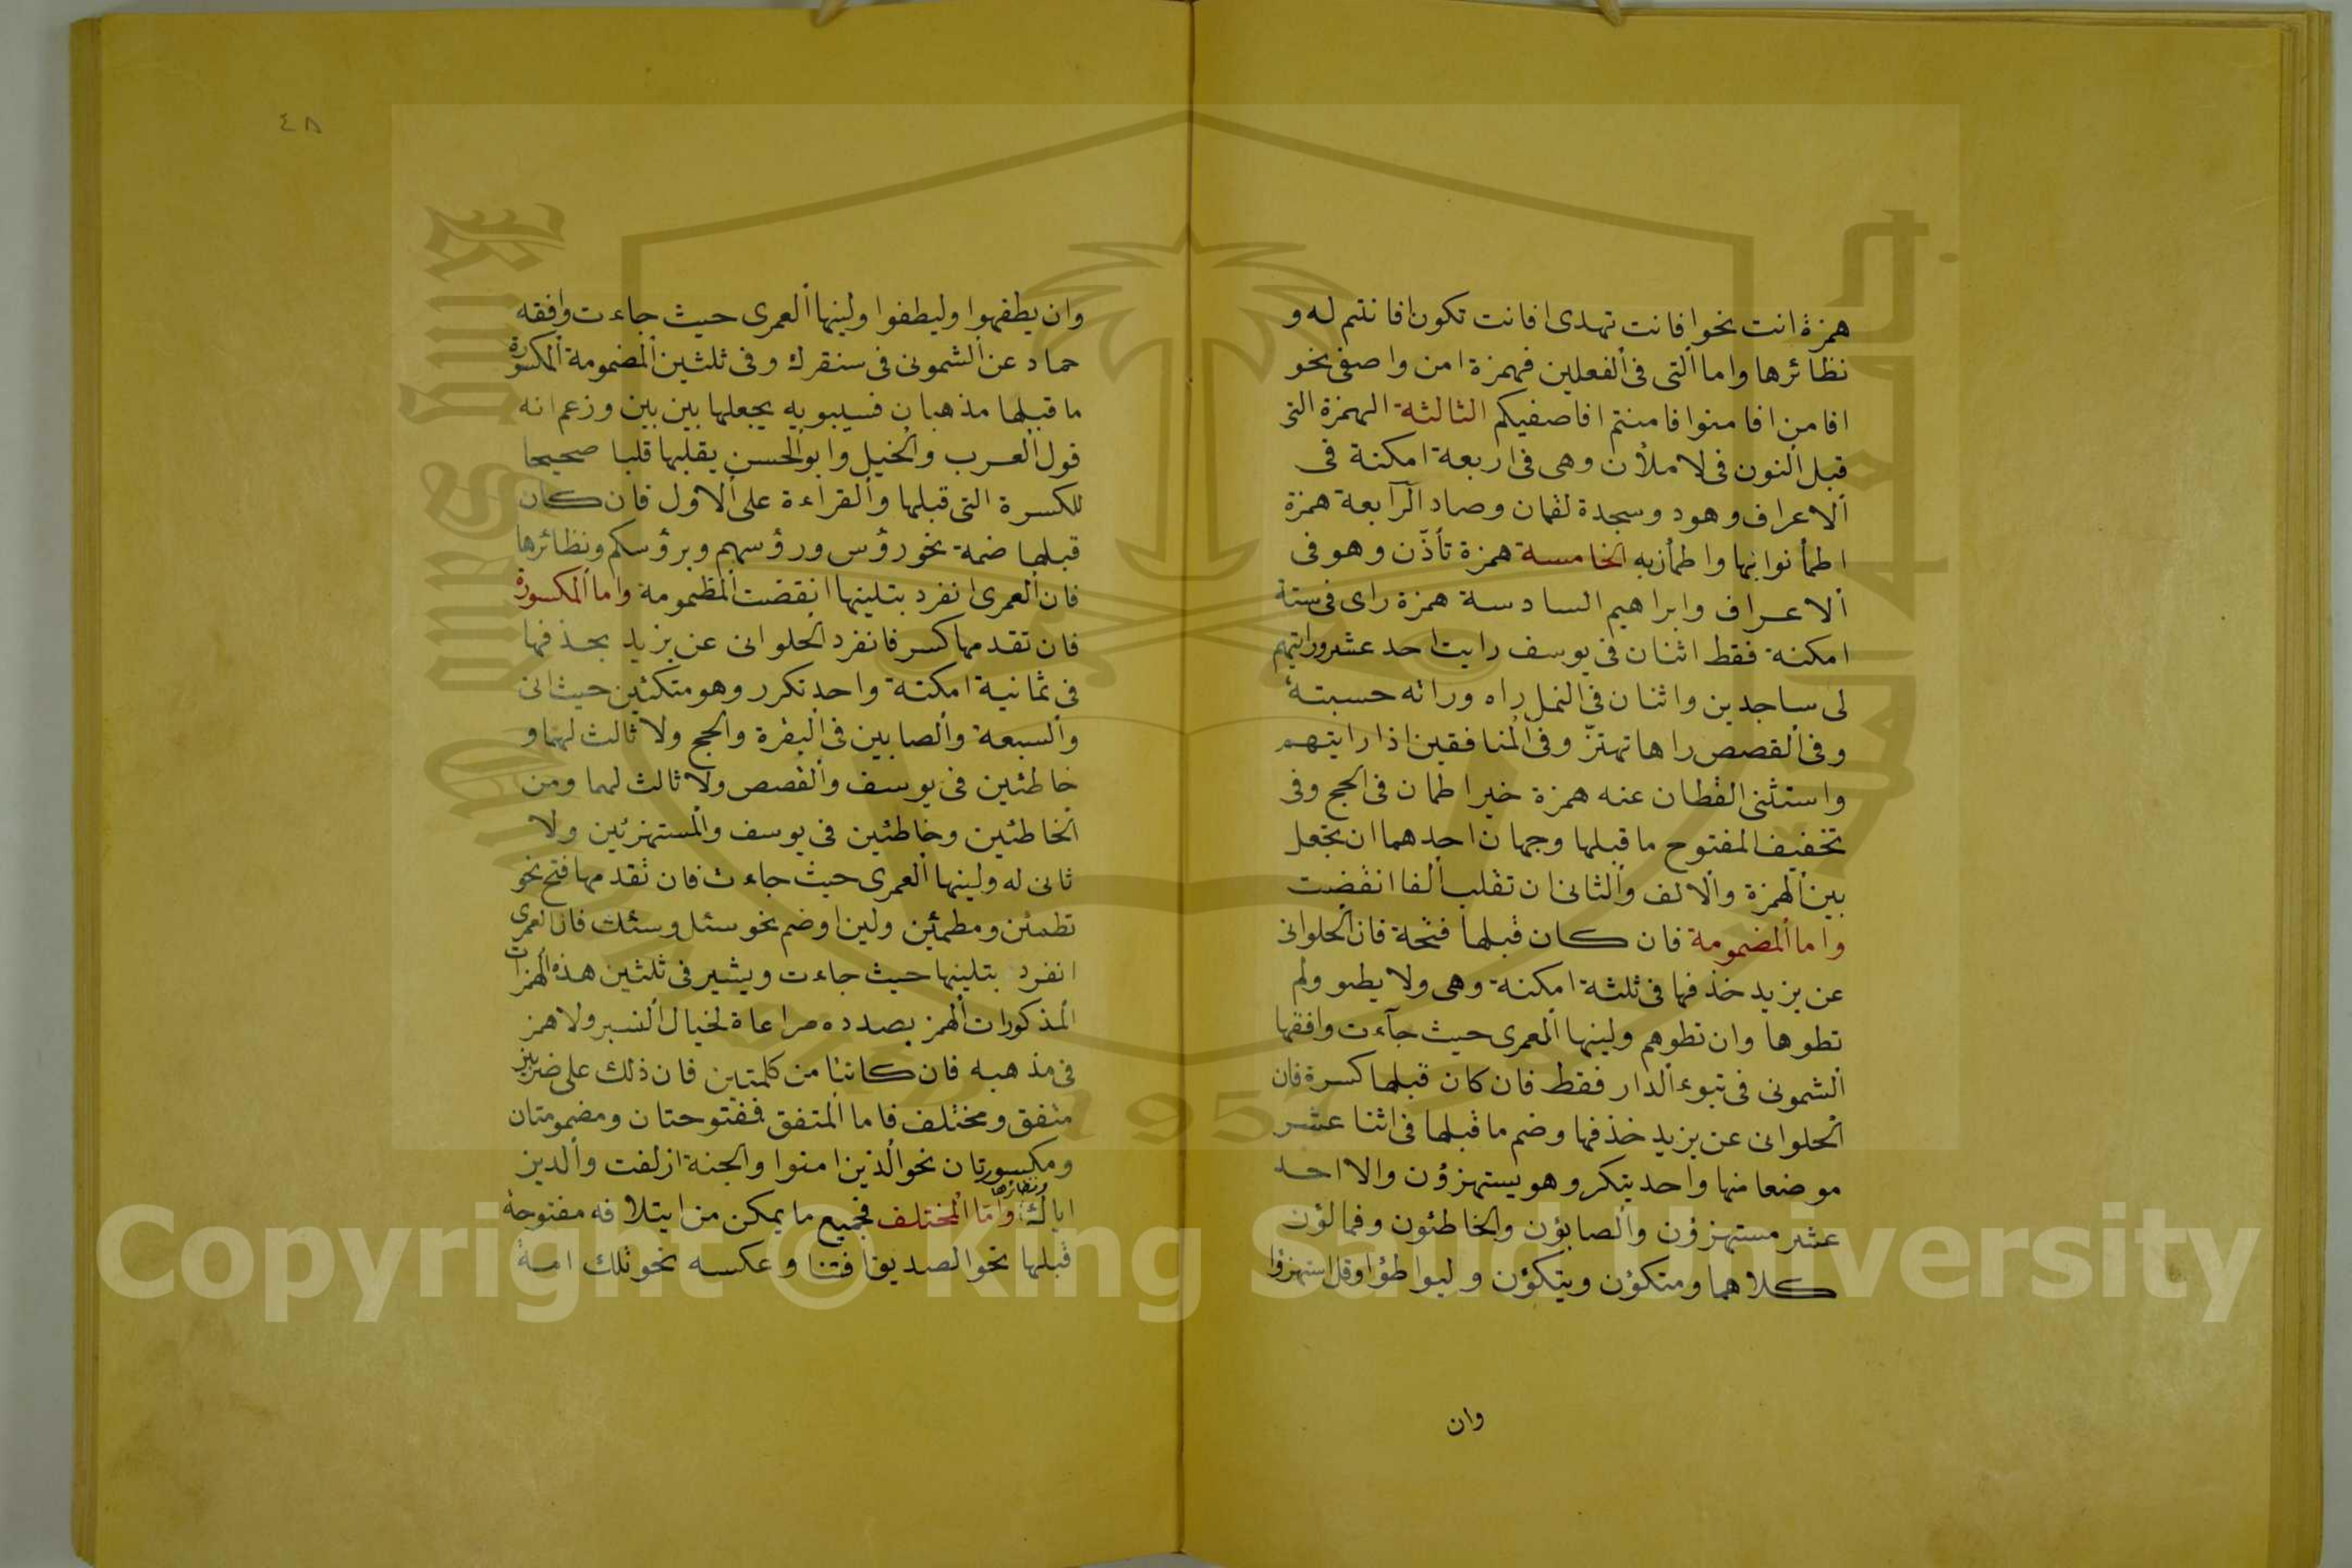 همزة انت نحو افانت تهدى افانت تكون افانتم له و
نظائرها واما التى فى الفعلين فهمزة امن واصفى نحو
افامن افامنوا فامنتم افاصفيكم الثالثة الهمزة التى
قبل النون فى لاملأن وهى فى اربعة امكنة فى
الاعراف وهود وسجدة لقمان وصاد الرابعة همزة
اطمأنوا بها واطمأن به الخامسة همزة تأذّن وهو فى
الاعراف وابراهيم السادسة همزة راى فى ستة
امكنة فقط اثنان فى يوسف رايت احد عشر ورايتهم
لى ساجدين واثنان فى النمل راه وراته حسبته
وفى القصص راها تهتزّ وفى المنافقين اذا رايتهم
واستثنى القطان عنه همزة خير اطمان فى الحج وفى
تخفيف المفتوح ما قبلها وجهان احدهما ان تجعل
بين الهمزة والالف والثانى ان تقلب الفا انقضت
واما المضمومة فان كان قبلها فتحة فان الحلوانى
عن يزيد حذفها فى ثلثة امكنة وهى ولا يطو ولم
تطوها وان تطوهم ولينها العمرى حيث جآءت وافقها
الشمونى فى تبوء الدار فقط فان كان قبلها كسرة فان
الحلوانى عن يزيد حذفها وضم ما قبلها فى اثنا عشر
موضعا منها واحد يتكرر وهو يستهزؤن والا احد
عشر مستهزؤن والصابؤن والخاطئون وفمالؤن
كلاهما ومتكؤن ويتكؤن وليواطؤا وقل استهزؤا
وان
٤٨
وان يطفهوا وليطفوا ولينها العمرى حيث جاءت وافقه
حماد عن الشمونى فى سنقرك وفى ثلثين المضمومة المكسورة
ما قبلها مذهبان فسيبويه يجعلها بين بين وزعم انه
قول العرب والخيل وابو الحسن يقلبها قلبا صحيحا
للكسرة التى قبلها والقراءة على الاول فان كان
قبلها ضمة نحو رؤس ورؤسهم وبرؤسكم ونظائرها
فان العمرى انفرد بتلينها انقضت المظمومة واما المكسورة
فان تقدمها كسر فانفرد الحلوانى عن يزيد بحذفها
فى ثمانية امكنة واحد تكرر وهو متكئين حيث اتى
والسبعة والصابين فى البقرة والحج ولا ثالث لهما و
خاطئين فى يوسف والقصص ولا ثالث لهما ومن
الخاطئين وخاطئين فى يوسف والمستهزئين ولا
ثانى له ولينها العمرى حيث جاءت فان تقدمها فتح نحو
تطمئن ومطمئين ولين اوضم نحو سئل وسئلت فان العمرى
انفرد بتلينها حيث جاءت ويشير فى ثلثين هذه الهمزات
المذكورات الهمز بصدده مراعاة لخيال النبر ولا همز
فى مذهبه فان كانتا من كلمتين فان ذلك على ضربين
متفق ومختلف فاما المتفق ففتوحتان ومضمومتان
ومكسورتان نحو الذين امنوا والجنة ازلفت والدين
اياك ونظائرها وامّا المختلف فجميع ما يمكن من ايتلافه مفتوحة
قبلها نحو الصديق افتنا وعكسه نحو تلك امة